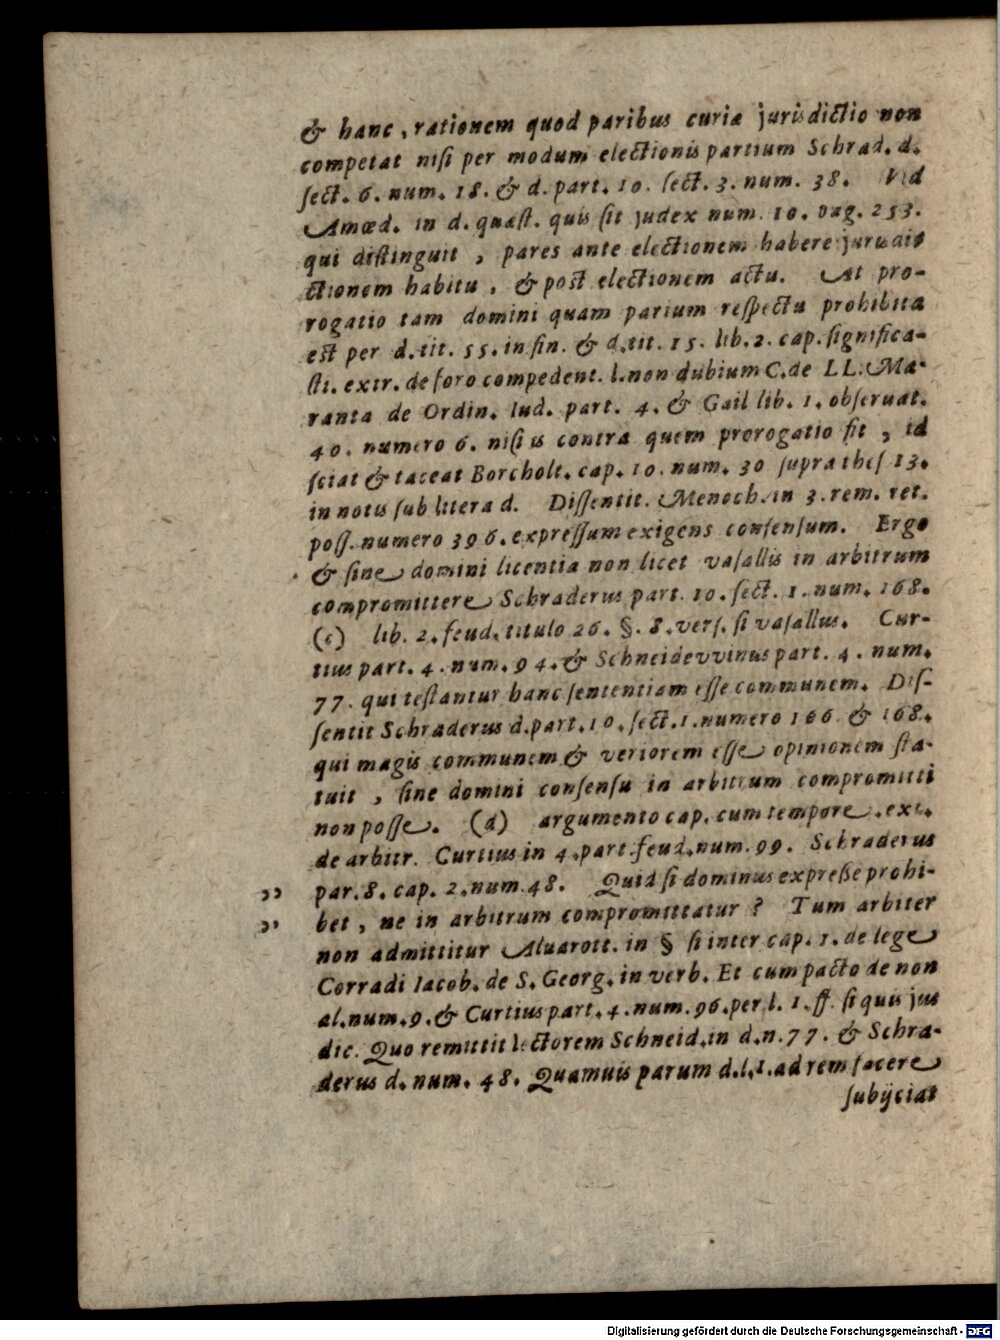 & hanc, rationem quod paribus curiæ jurisdictio non
competat nisi per modum electionis partium Schrad. d.
sect. 6. num. 18. & d. part. 10. sect. 3. num. 38. Vid
Amœd. in d. quæst. quis sit judex num. 10. pag. 253.
qui distinguit, pares ante electionem habere jurisdi-
ctionem habitu, & post electionem actu. At pro-
rogatio tam domini quam parium respectu prohibita
est per d. tit. 55. in fin. & d. tit. 15. lib. 2. cap. significa-
sti. extr. de foro compedent. l. non dubium C. de LL. Ma-
ranta de Ordin. Iud. part. 4. & Gail lib. 1. obseruat.
40. numero 6. nisi is contra quem prorogatio fit, id
sciat & taceat Borcholt. cap. 10. num. 30 supra thes 13.
in notis sub litera d. Dissentit. Menoch. in 3. rem. ret.
poss. numero 396. expressum exigens consensum. Ergo
& sine domini licentia non licet vasallis in arbitrum
compromittere Schraderus part. 10. sect. 1. num. 168.
(c) lib. 2. feud. titulo 26. §. 8. vers. si vasallus. Cur-
tius part. 4. num. 94. & Schneidevvinus part. 4. num.
77. qui testantur hanc sententiam esse communem. Dis-
sentit Schraderus d. part. 10. sect. 1. numero 166. & 168.
qui magis communem & veriorem esse opinionem sta-
tuit, sine domini consensu in arbitrum compromitti
non posse. (d) argumento cap. cum tempore. ext.
de arbitr. Curtius in 4. part. feud. num. 99. Schraderus
par. 8. cap. 2. num. 48. Quid si dominus expreße prohi-
bet, ne in arbitrum compromittatur? Tum arbiter
non admittitur Aluarott. in § si inter cap. 1. de lege
Corradi Iacob. de S. Georg. in verb. Et cum pacto de non
al. num. 9. & Curtius part. 4. num. 96. per l. 1. ff. si quis jus
dic. Quo remittit lectorem Schneid. in d. n. 77. & Schra-
derus d. num. 48. Quamuis parum d. l. 1. ad rem facere
subijciat
Digitalisierung gefördert durch die Deutsche Forschungsgemeinschaft - DFG